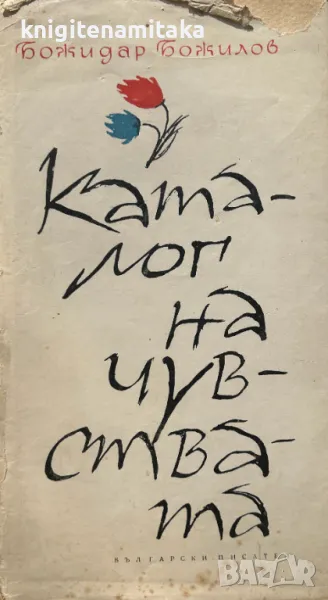 knigitenamitaka
Божидар Божилов
Ката-
лог
на
чув-
ства-
та
БЪЛГАРСКИ ПИСАТЕЛ
bazar.bg